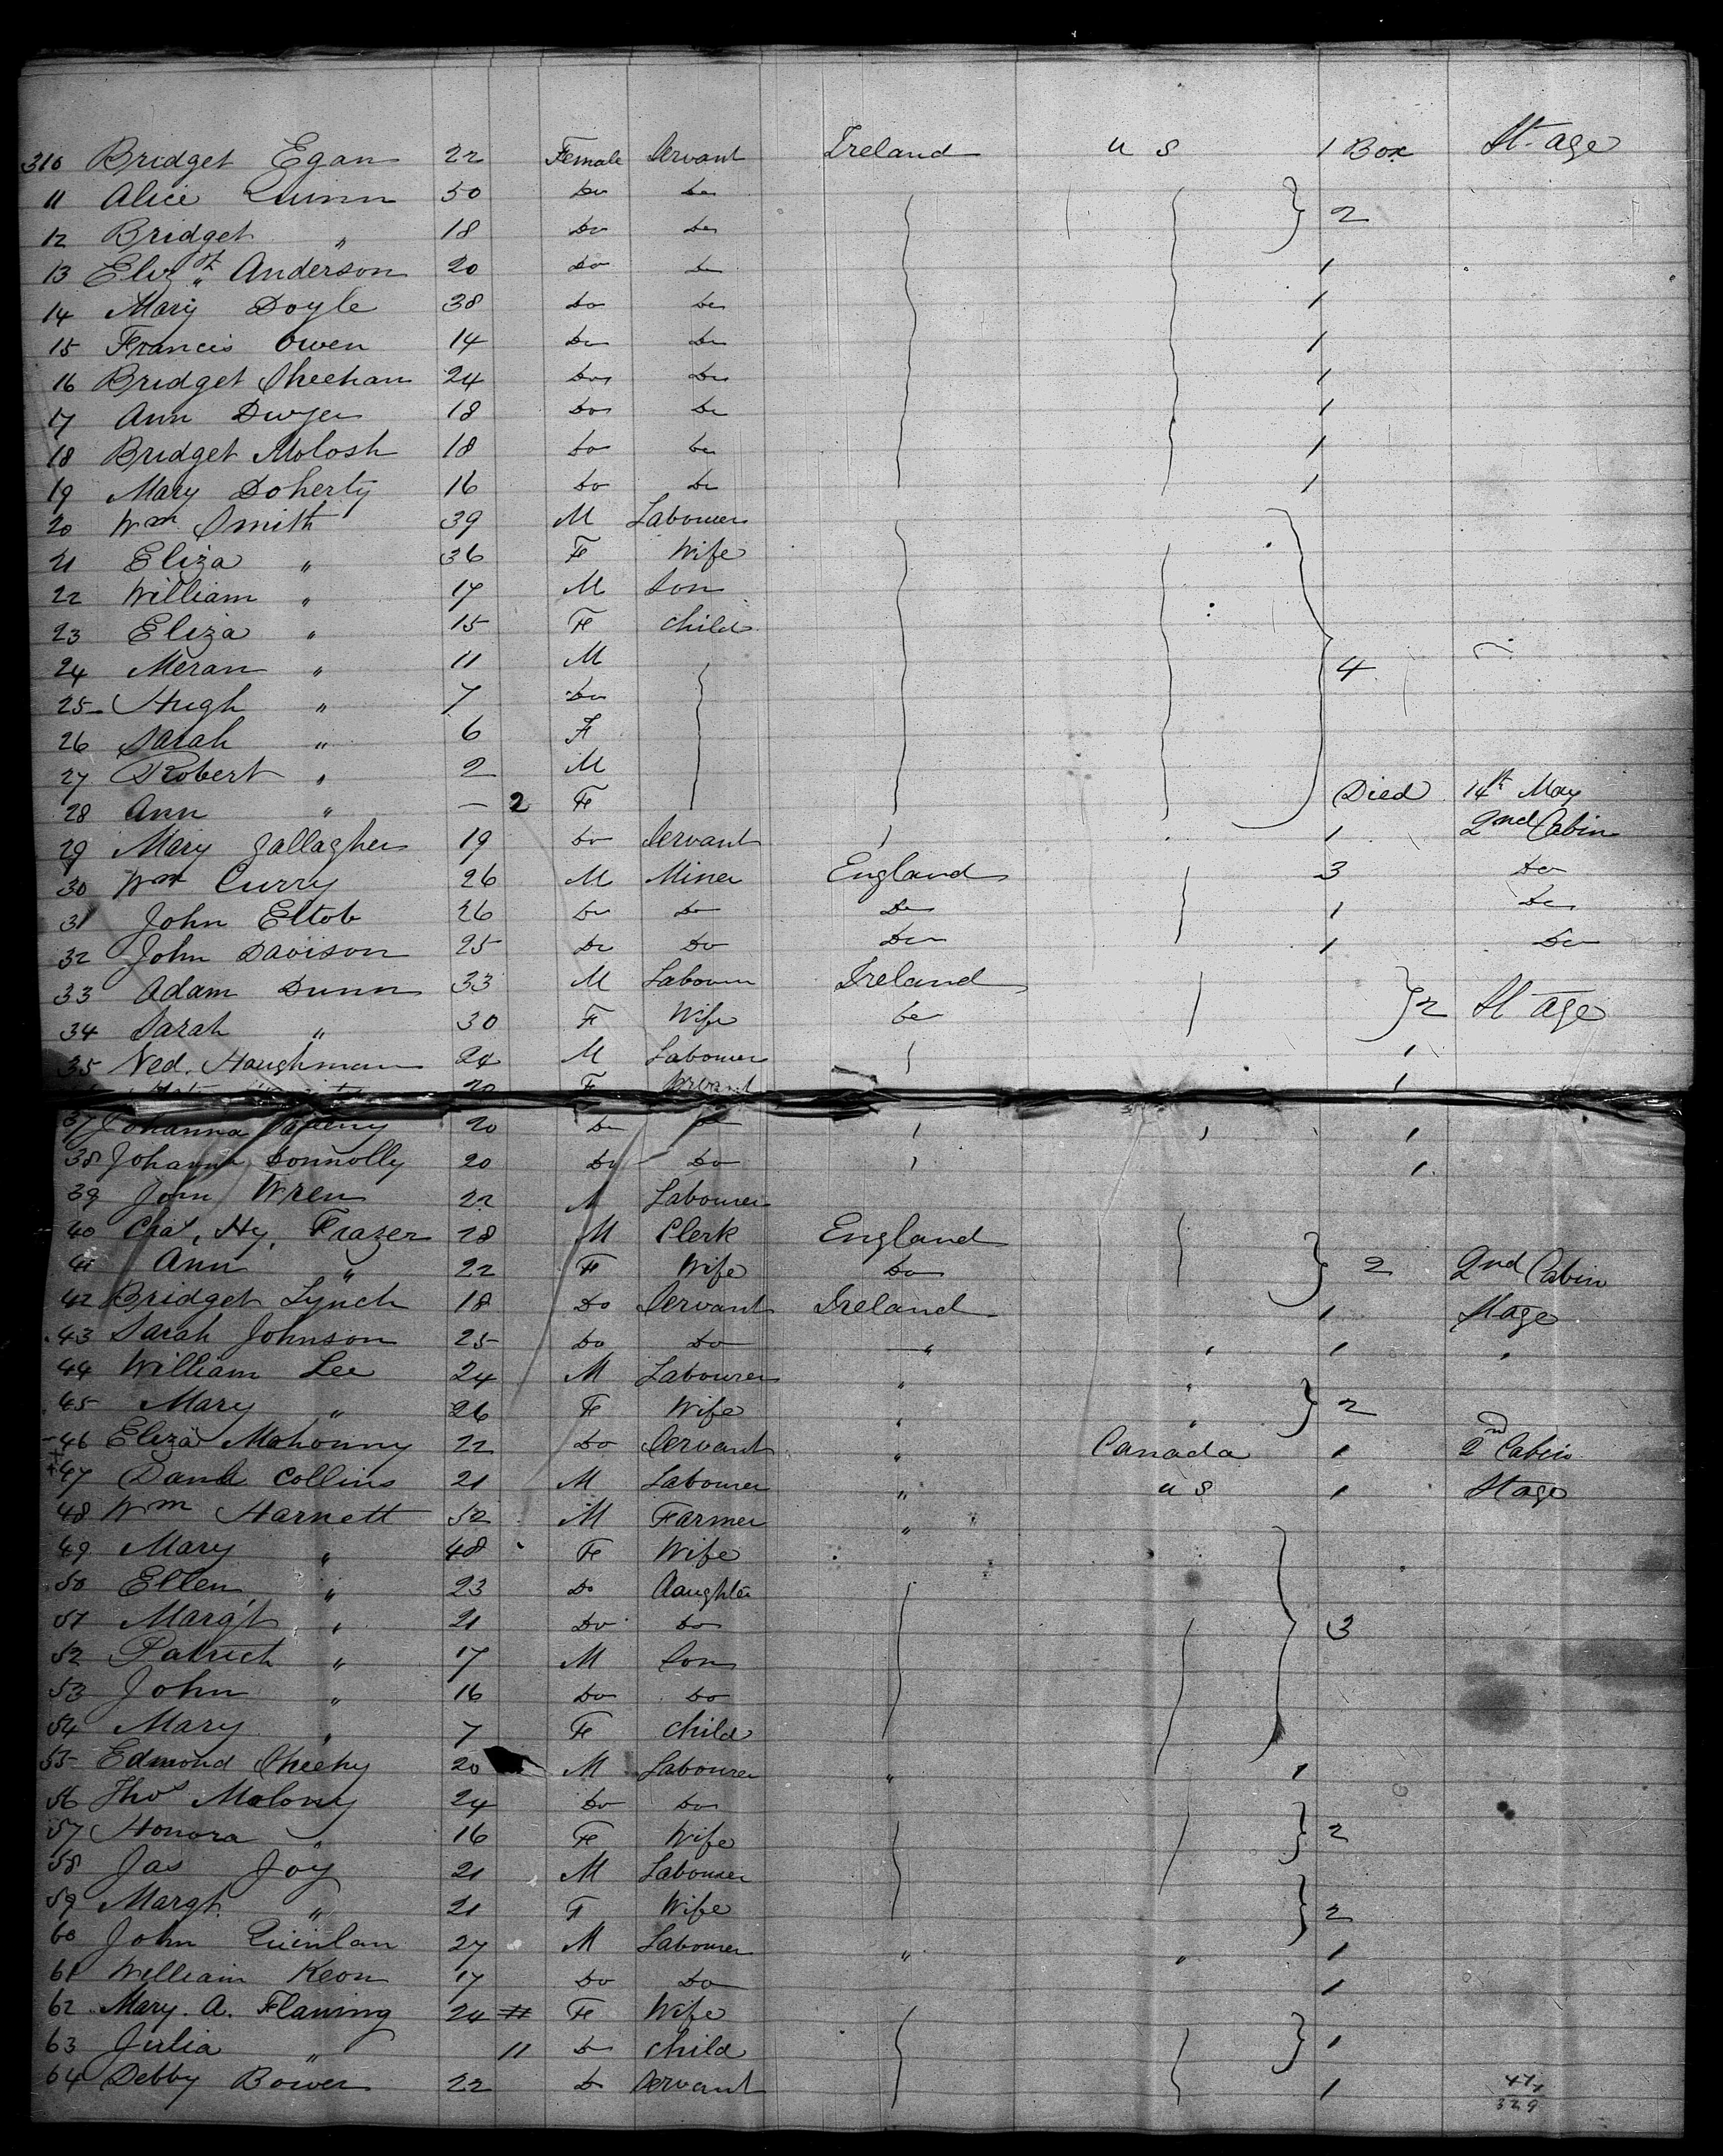 310 Bridget Egan 22 Female Servant Ireland U S 1 Box St. age
11 Alice Quinn 50 Do Do } 2
12 Bridget " 18 Do Do
13 Elizth Anderson 20 Do Do 1
14 Mary Doyle 38 Do Do 1
15 Francis Owen 14 Do Do 1
16 Bridget Sheehan 24 Do Do 1
17 Ann Dwyer 18 Do Do 1
18 Bridget Molosh 18 Do Do 1
19 Mary Doherty 16 Do Do 1
20 Wm Smith 39 M Labourer
21 Eliza " 36 F Wife
22 William " 17 M Son
23 Eliza " 15 F Child
24 Meran " 11 M } 4
25 Hugh " 7 Do
26 Sarah " 6 F
27 Robert " 2 M
28 Ann " — 2 F Died 14th May
29 Mary Gallagher 19 Do Servant 1 2nd Cabin
30 Wm Curry 26 M Miner England 3 Do
31 John Eltob 26 Do Do Do 1 Do
32 John Davison 25 Do Do Do 1 Do
33 Adam Dunn 33 M Labourer Ireland } 2 St age
34 Sarah " 30 F Wife Do
35 Ned. Haughman 24 M Labourer 1
20 F Servant 1
37 Johanna 20 Do Do 1
38 Johanna Donnolly 20 Do Do 1
39 John Wren 22 M Labourer
40 Chas. Hy. Frazer 28 M Clerk England } 2 2nd Cabin
41 Ann " 22 F Wife Do
42 Bridget Lynch 18 Do Servant Ireland 1 Stage
43 Sarah Johnson 25 Do Do " " 1 "
44 William Lee 24 M Labourer " "
45 Mary " 26 F Wife " " } 2
46 Eliza Mahonny 22 Do Servant " Canada 1 2nd Cabin
47 Danl Collins 21 M Labourer " U S 1 Stage
48 Wm Harnett 52 M Farmer "
49 Mary " 48 F Wife
50 Ellen " 23 Do Daughter
51 Margt " 21 Do Do } 3
52 Patrick " 17 M Son
53 John " 16 Do Do
54 Mary " 7 F Child
55 Edmond Sheehy 20 M Labourer " 1
56 Thos Malony 24 Do Do
57 Honora " 16 F Wife } 2
58 Jas Joy 21 M Labourer
59 Margt. " 21 F Wife } 2
60 John Quinlan 27 M Labourer " " 1
61 William Keon 17 Do Do 1
62 Mary. A. Flaming 24 F Wife
63 Julia " 11 Do Child } 1
64 Debby Bower 22 Do Servant 1
329